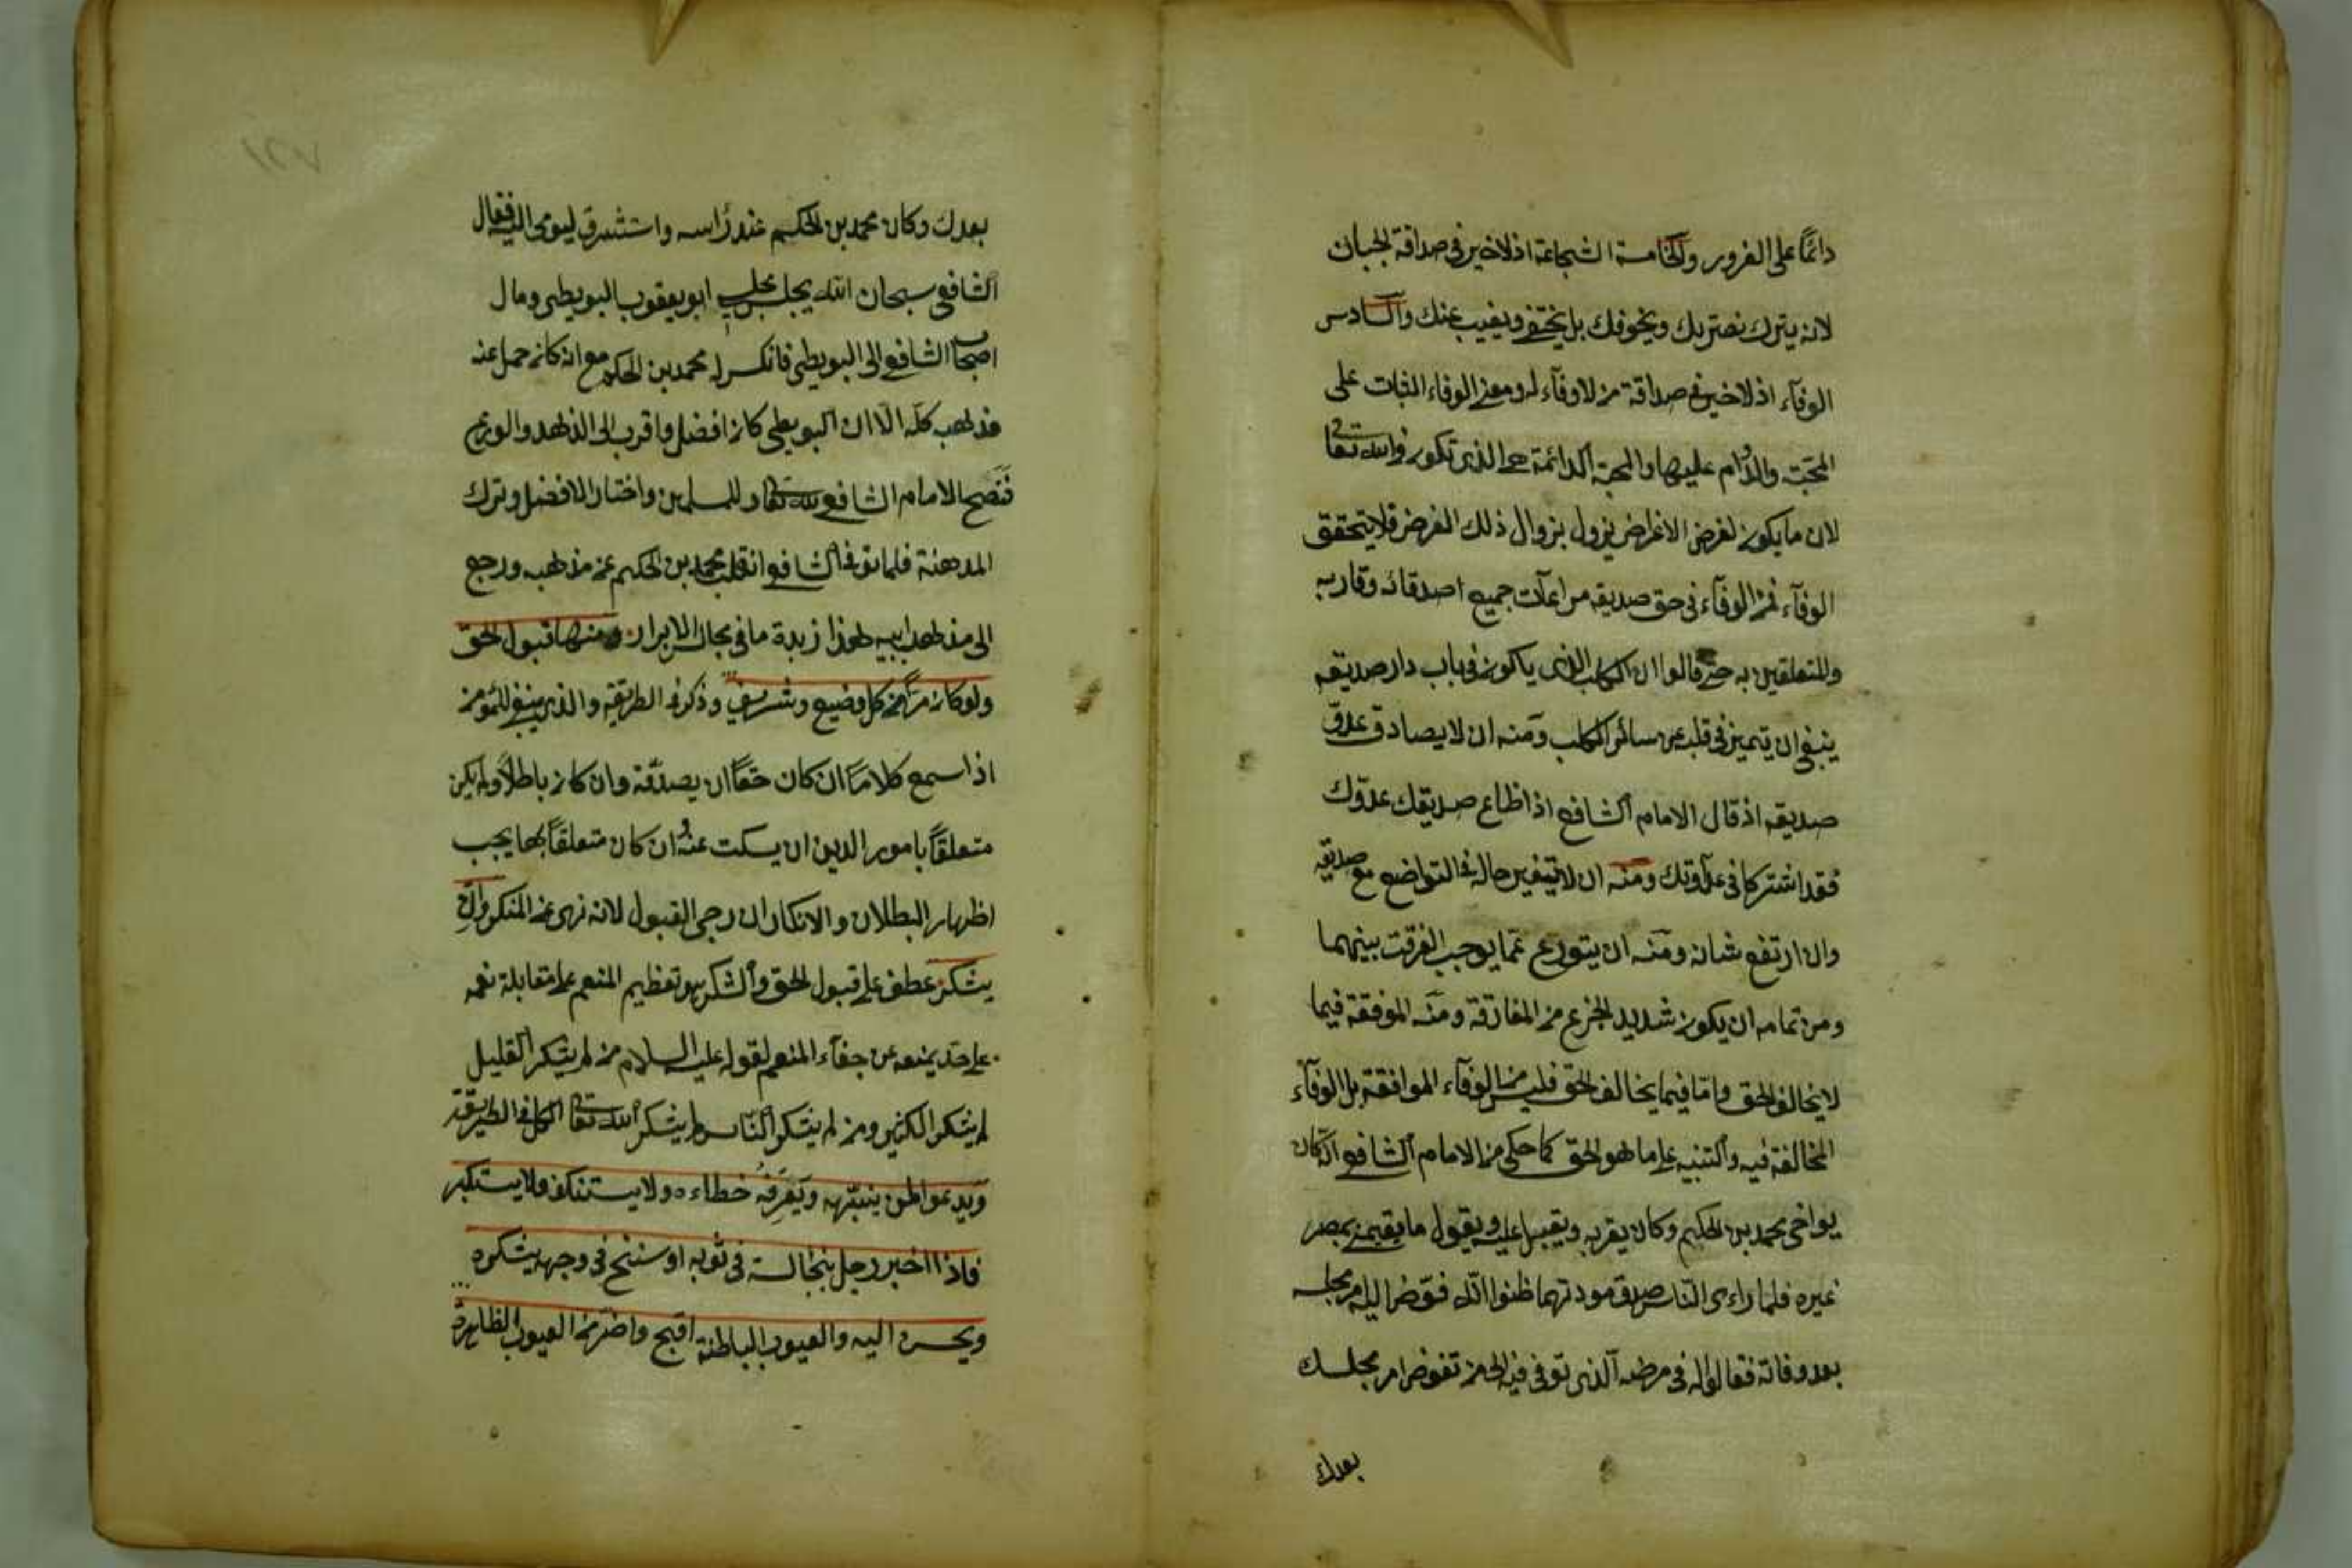 دائمًا على الغرور والخامسة الشجاعة اذ لاخير في صداقة الجبان
لانه يترك نصرتك ويخوفك بل يختفى ويغيب عنك والسادس
الوفآء اذ لاخير في صداقة من لاوفآء له ومعنى الوفاء الثبات على
المحبّت والدوام عليها والمحبة الدائمة هى الذى تكون فى الله تعالى
لان ما يكون لغرض الاغراض يزول بزوال ذلك الغرض فلا يتحقق
الوفآء فمن الوفآء فى حق صديقه مراعآت جميع اصدقائه وقاربه
والمتعلقين به حتى قالوا ان الكلب الذى ياكون فى باب دار صديقه
ينبغى ان يتميز فى قلبه عن سائر الكلب ومنه ان لا يصادق عدوّ
صديقه اذ قال الامام الشافعى اذ اطاع صديقك عدوّك
فقد اشتركا فى عداوتك ومنه ان لا يتغير حاله فى التواضع مع صديقه
وان ارتفع شانه ومنه ان يتورع عمّا يوجب الفرقت بينهما
ومن تمامه ان يكون شديد الجزع من المفارقة ومنه الموفقة فيما
لا يخالف الحق وامّا فيما يخالف الحق فليس من الوفآء الموافقة بل الوفآء
المخالفة فيه والتنبيه على ما هو الحق كما حكى من الامام الشافعى انه كان
يواخى محمد بن الحكيم وكان يقربه ويقبل عليه ويقول ما يقيمنى بمصر
غيره فلما راءى الناس صدق مودتهما ظنوا انّه فوّض اليه امر مجلسه
بعد وفاته فقالوا له فى مرضه الذى توفى فيه الى من تفوض امر مجلسك
بعدك
بعدك وكان محمد بن الحكيم عند رأسه واستشرق ليومى اليه فقال
الشافعى سبحان الله يجلس مجلسى ابو يعقوب البويطى ومال
اصحاب الشافعى الى البويطى فانكسر له محمد بن الحكم مع انه كان حمل عنه
مذهب كله الا ان البويطى كان افضل واقرب الى الذهد والورع
فنصح الامام الشافعى لله تعالى وللمسلمين واختار الافضل وترك
المدهنة فلما توفى الشافعى انقلب محمد بن الحكيم عن مذهبه ورجع
الى مذهب ابيه هذا زبدة ما فى مجالس الابرار ومنها قبول الحق
ولو كان مرًّا من كل وضيع وشريف وذكر فى الطريقه والذى ينبغى للمؤمن
اذا سمع كلامًا ان كان حقًا ان يصدّقه وان كان باطلاً ولم يكن
متعلقاً بامور الدين ان يسكت عنه وان كان متعلقاً بها يجب
اظهار البطلان والانكار ان رجى القبول لانه نهى عن المنكر وان
يشكر عطف على قبول الحق والشكر هو تعظيم المنعم على مقابلة نعمه
على حدّ يمنعه عن جفآء المنعم لقوله عليه السلام من لم يشكر القليل
لم يشكر الكثير ومن لم يشكر النّاس لم يشكر الله تعالى الكل فى الطريقة
ويدعوا لمن ينبّهه ويعرفه خطاءه ولا يستنكف ولا يستكبر
فاذا اخبر رجل بنجاسة فى ثوبه او سنخ فى وجهه يشكره
ويحسن اليه والعيوب الباطنة اقبح واضرّ من العيوب الظاهرة